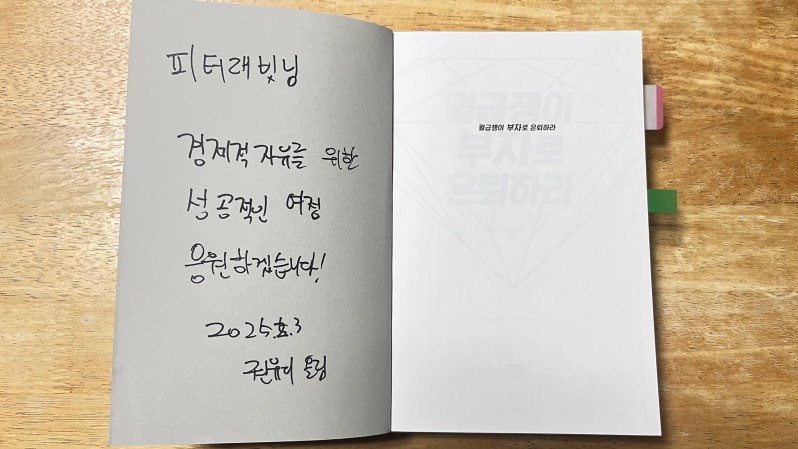 피터래빗님
경제적 자유를 위한
성공적인 여정
응원하겠습니다!
2025. 3
드림
월급쟁이 부자로 은퇴하라
월급쟁이
부자로
은퇴하라